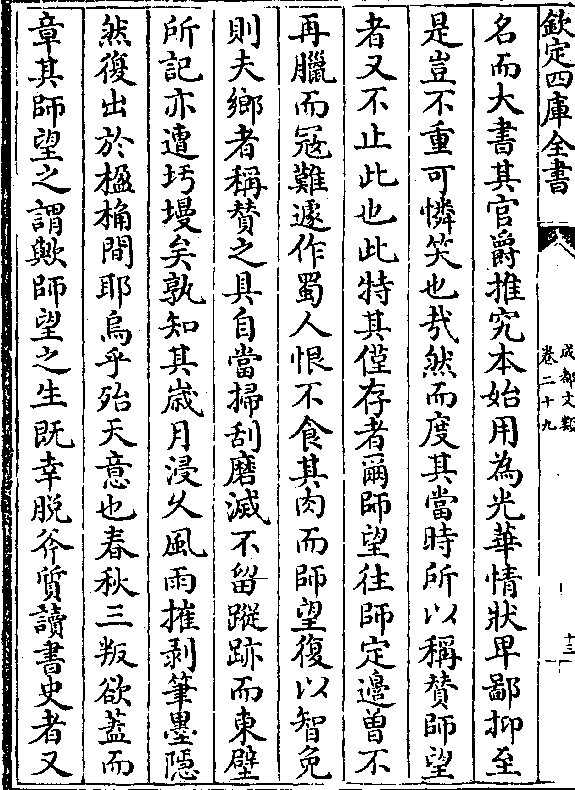 欽定四庫全書
成都文類
卷二十九
十三
名而大書其官爵推究本始用為光華情狀卑鄙抑至
是豈不重可憐笑也哉然而度其當時所以稱賛師望
者又不止此也此特其僅存者爾師望往師定邊曽不
再臘而冦難遽作蜀人恨不食其肉而師望復以智免
則夫鄉者稱賛之具自當掃刮磨滅不留蹤跡而東壁
所記亦遭圬墁矣孰知其歳月浸久風雨摧剥筆墨隠
然復出於楹桷間耶烏乎殆天意也春秋三叛欲葢而
章其師望之謂歟師望之生既幸脱斧質讀書史者又